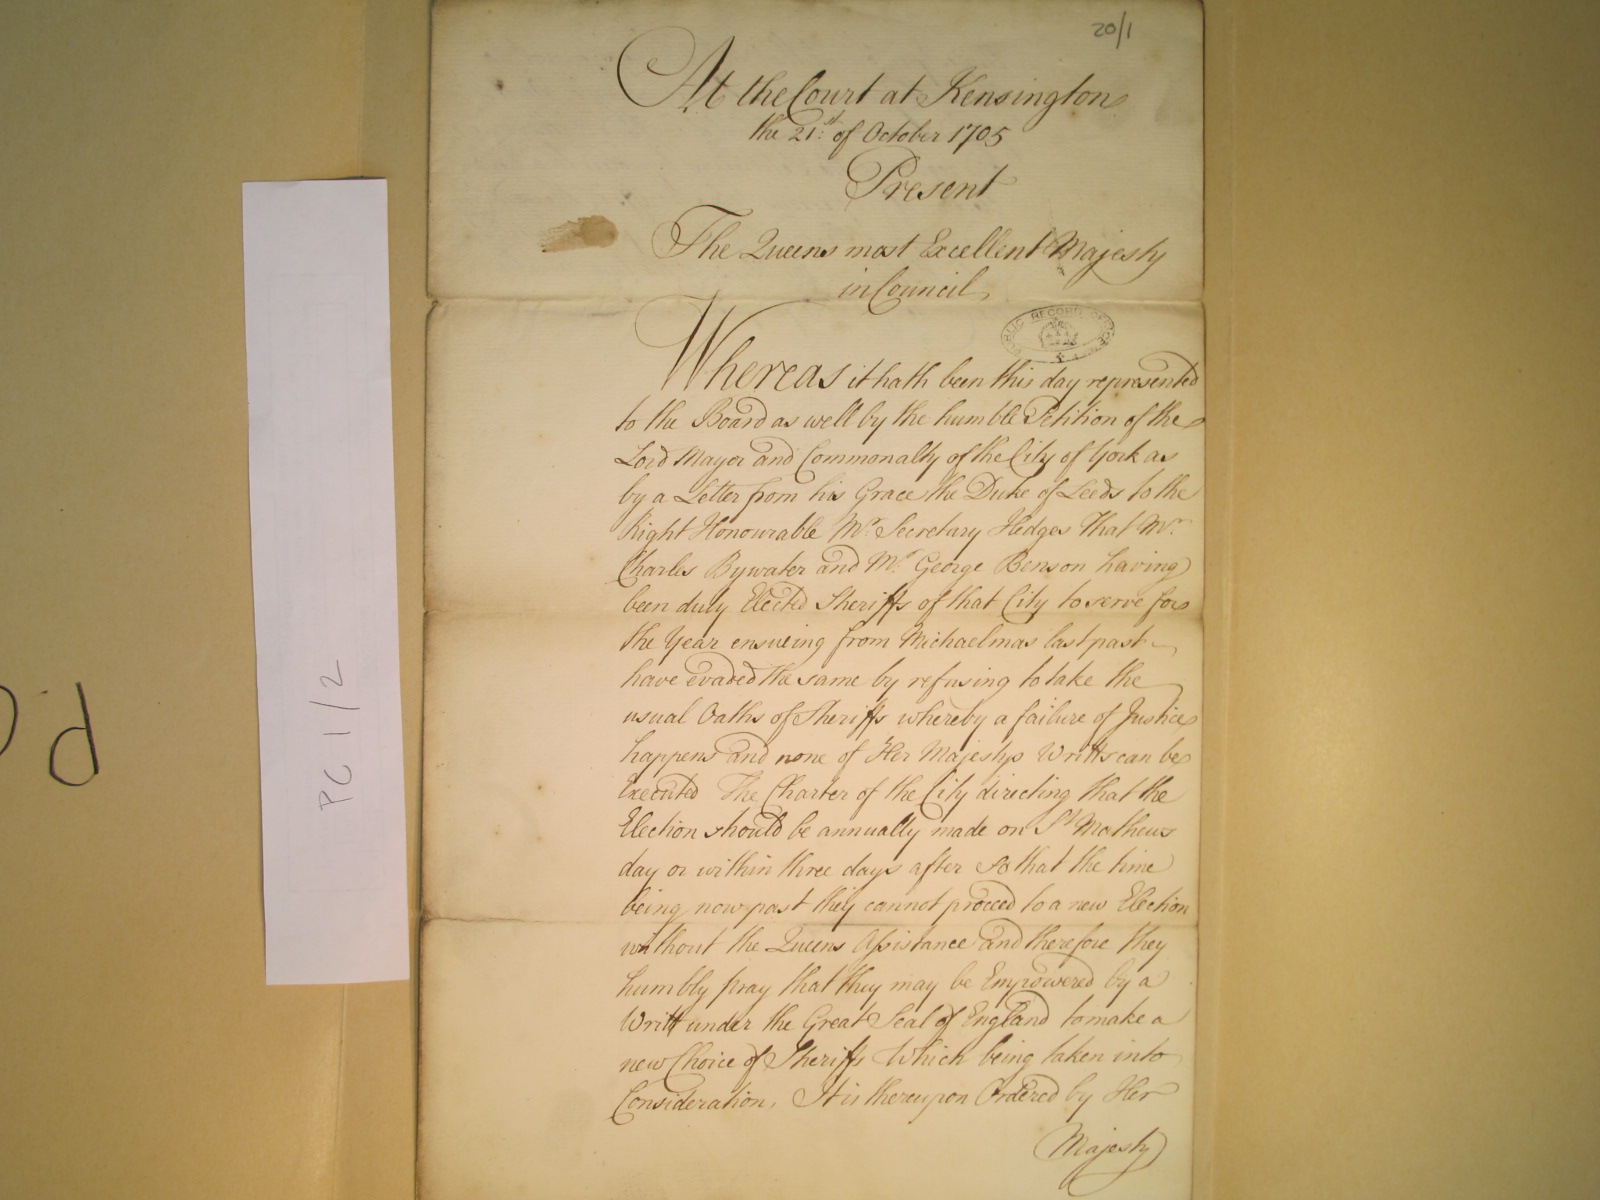 20/1
At the Court at Kensington
the 21st of October 1705
Present
The Queens most Excellent Majesty
in Council,
PUBLIC RECORD OFFICE
Whereas it hath been this day represented
to the Board as well by the humble Petition of the
Lord Mayor and Commonalty of the City of York as
by a Letter from his Grace the Duke of Leeds to the
Right Honourable Mr. Secretary Hedges That Mr.
Charles Bywater and Mr. George Benson having
been duly Elected Sheriffs of that City to serve for
the Year ensueing from Michaelmas last past
have evaded the same by refusing to take the
usual Oaths of Sheriffs whereby a failure of Justice
happens and none of Her Majestys Writts can be
Executed The Charter of the City directing that the
Election should be annually made on St Mathews
day or within three days after so that the time
being now past they cannot proceed to a new Election
without the Queens Assistance and therefore they
humbly pray that they may be Empowered by a
Writt under the Great Seal of England to make a
new Choice of Sheriffs Which being taken into
Consideration, It is thereupon Ordered by Her
Majesty
PC 1/2